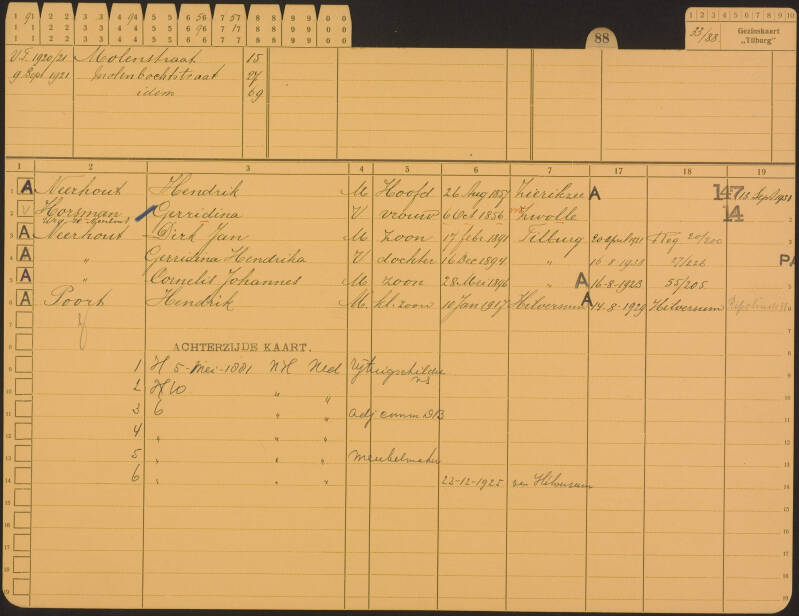 88
33/88
Gezinskaart
„Tilburg”
V.T. 1920/21 Molenstraat 15.
9 Sept 1921 Molenbochtstraat 27
idem 69
1 2 3 4 5 6 7 17 18 19
A Neerhout Hendrik M Hoofd 26 Aug 1857 Zierikzee A 147 13 Sept 1931
V Horsman Gerridina V vrouw 6 Oct 1856 Zwolle 14
A Neerhout Dirk Jan M zoon 17 febr 1891 Tilburg 20 april 1921 20/200
A „ Gerridina Hendrika V dochter 16 Dec 1894 „ 16-8-1923 27/226 PA
A „ Cornelis Johannes M zoon 28 Mei 1896 „ A 16-8-1923 55/205
A Poort Hendrik M kl. zoon 10 Jan 1917 Hilversum A 14-8-1929 Hilversum
ACHTERZIJDE KAART.
1 H 5-Mei-1881 NH Ned Rijtuigschilder
2 H 10 „ „
3 6 „ „ adj comm DB
4 „ „ „
5 „ „ „ meubelmaker
6 „ „ „ 22-12-1925 van Hilversum